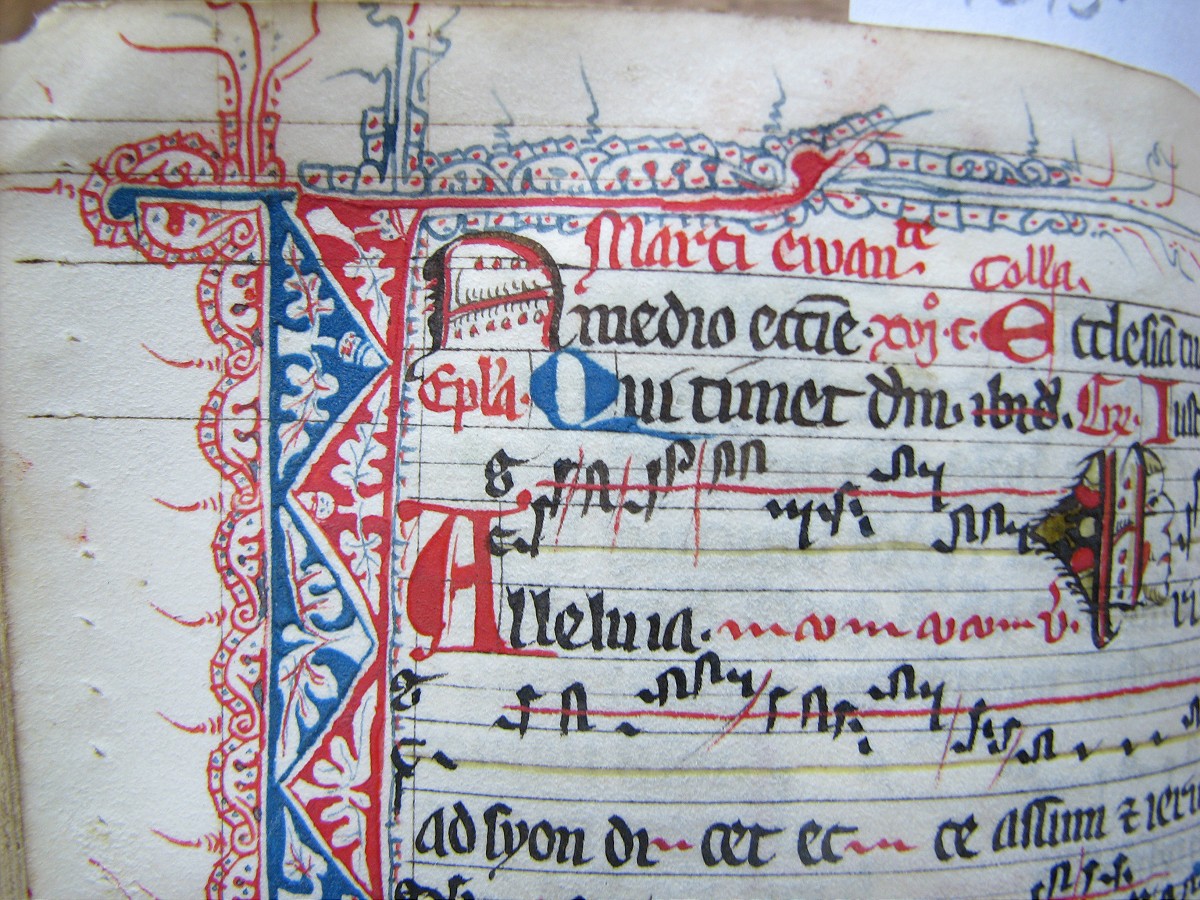 Marci ewan^te
Colla.
IN medio eccīe. xvj° c. Ecclesiā tu
Epl'a. Qui timet dm̄. ibid. Gr. Ius
Alleluia. v̄. P ri
ad syon di cet ec ce assum ⁊ ieru